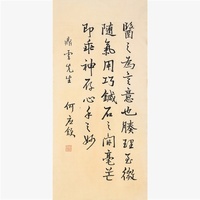 醫之為言意也腠理至微
隨氣用巧鍼石之間毫芒
即乖神存心手之妙
雲先生
何應欽